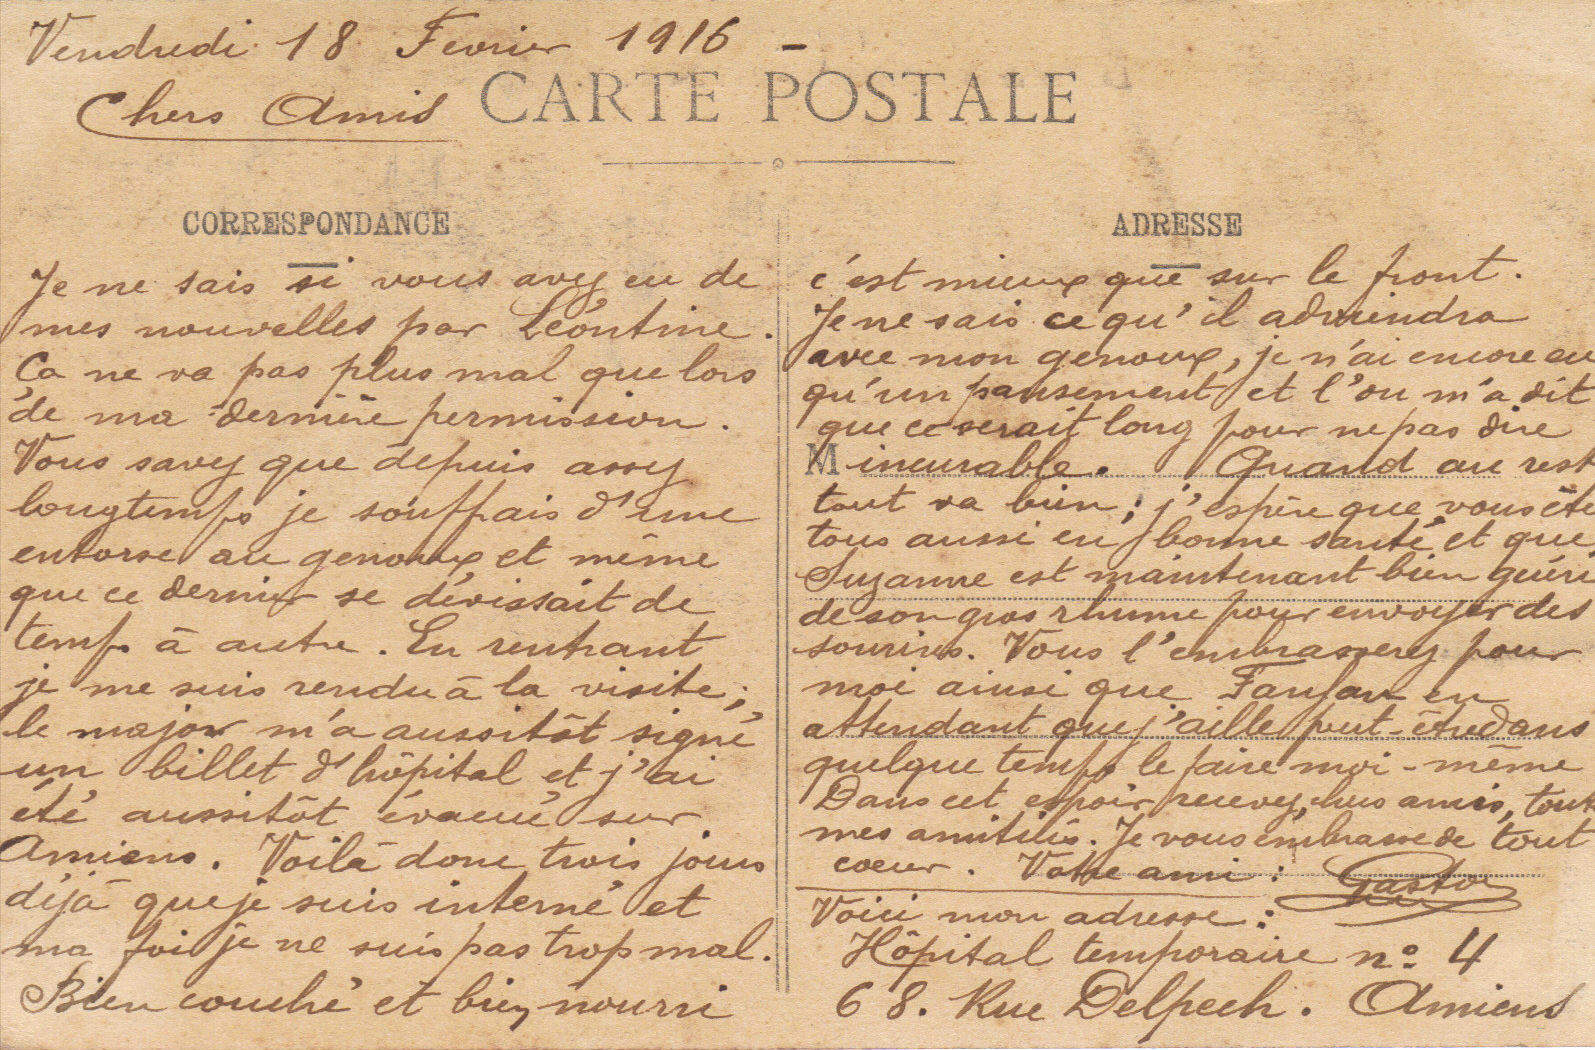 Vendredi 18 Fevrier 1916 -
Chers Amis
CARTE POSTALE
CORRESPONDANCE
Je ne sais si vous avez eu de
mes nouvelles par Léontine.
Ça ne va pas plus mal que lors
de ma dernière permission.
Vous savez que depuis assez
longtemps je souffrais d'une
entorse au genoux et même
que ce dernier se dévissait de
temps à autre. En rentrant
je me suis rendu à la visite;
le major m'a aussitôt signé
un billet d'hôpital et j'ai
été aussitôt évacué sur
Amiens. Voilà donc trois jours
déjà que je suis interné et
ma foi je ne suis pas trop mal.
Bien couché et bien nourri
ADRESSE
c'est mieux que sur le front.
Je ne sais ce qu'il adviendra
avec mon genoux, je n'ai encore eu
qu'un pansement et l'on m'a dit
que ce serait long pour ne pas dire
M incurable. Quand au rest
tout va bien; j'espère que vous ête
tous aussi en bonne santé et que
Suzanne est maintenant bien guéri
de son gros rhume pour envoyer des
sourires. Vous l'embrasserez pour
moi ainsi que Fanfan en
attendant que j'aille peut-être dans
quelque temps le faire moi-même
Dans cet espoir recevez, chers amis, tout
mes amitiés. Je vous embrasse de tout
coeur. Votre ami: Gaston
Voici mon adresse:
Hôpital temporaire n° 4
68. Rue Delpech. Amiens